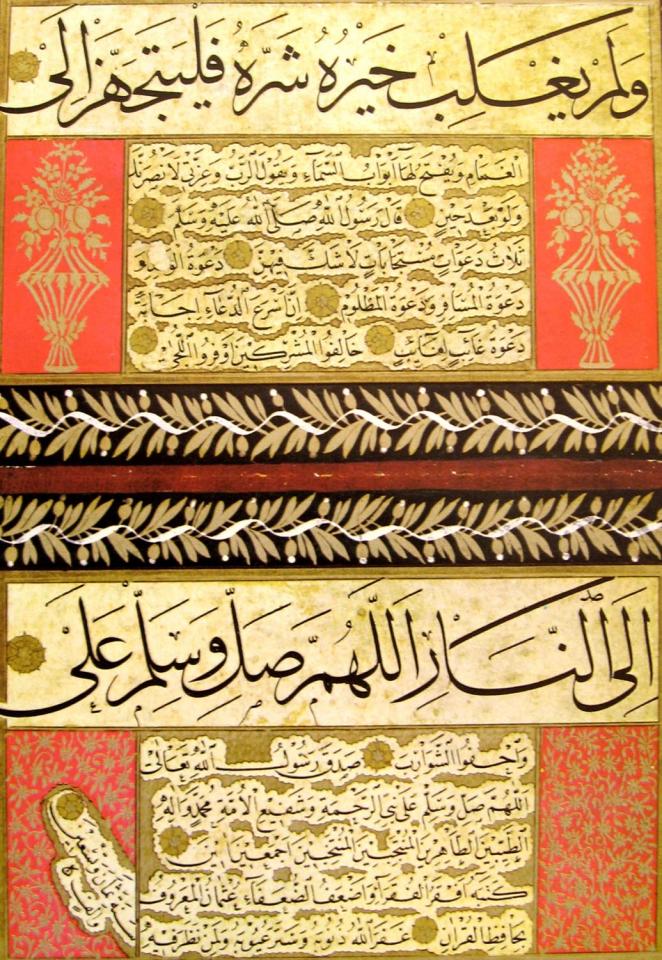 وَلَمْ يَغْلِبْ خَيْرُهُ شَرَّهُ فَلْيَتَجَهَّزْ إِلَى
الغمام ويفتح لها أبواب السماء ويقول الرب وعزتي لأنصرنك
ولو بعد حين قال رسول الله صلى الله عليه وسلم
ثلاث دعوات مستجابات لا شك فيهن دعوة الوالد و
دعوة المسافر ودعوة المظلوم إن أسرع الدعاء إجابة
دعوة غائب لغائب خالفوا المشركين أوفروا اللحى
إِلَى النَّارِ اللَّهُمَّ صَلِّ وَسَلِّمْ عَلَى
وأحفوا الشوارب صدق رسول الله تعالى
اللهم صل وسلم على نبي الرحمة وشفيع الأمة محمد وآله
الطيبين الطاهرين المنتجبين أجمعين آمين
كتبه أفقر الفقراء وأضعف الضعفاء عثمان المعروف
بحافظ القرآن غفر الله ذنوبه وستر عيوبه ولمن نظر فيه